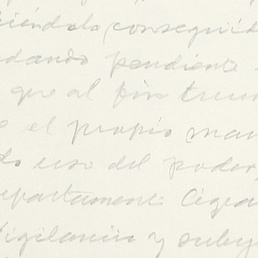 ciéndolo, conseguid
dando pendiente
que al fin triun
e el propio man
do uso del poder
epartament. Cigea
vigilancia y suby